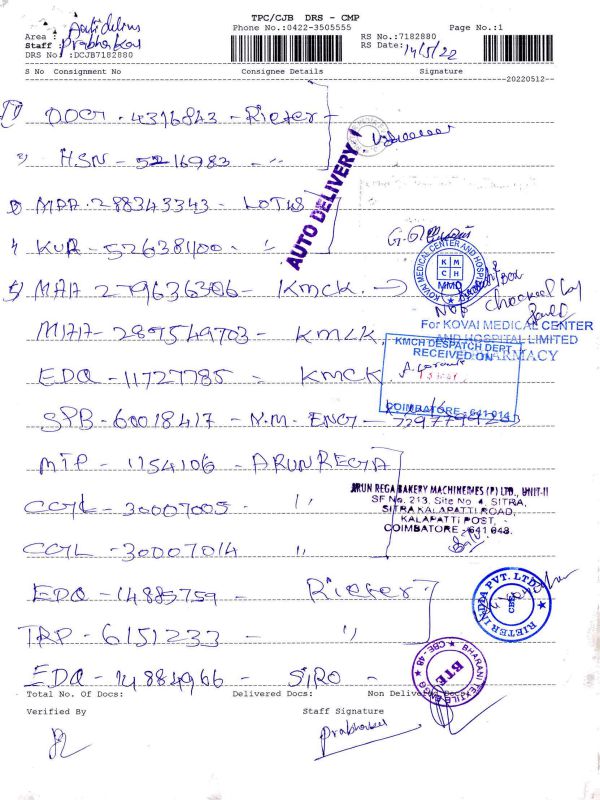 TPC/CJB DRS - CMP
Phone No.:0422-3505555
Page No.:1
Area :
Staff : Prabhakar
DRS No.:DCJB7182880
RS No.:7182880
RS Date: 14/5/22
S No Consignment No Consignee Details Signature
20220512--
1) DOG - 4316843 - Rieter -
2) HSN - 5216983 - "
3) MAA - 288343343 - LOTUS
4 KUR - 526381100 - "
5) MAA 279636306 - KMCK.
MAA - 289549703 - KMCK.
EDQ - 11727785 - KMCK
SPB - 60018417 - N.M. ENG - 
MTP - 1154106 - ARUN REGA
COGL - 30007005 - "
COGL - 30007014 - "
EDQ - 14885759 - Rieter
TRP - 6151233 - "
EDQ - 14884966 - SIRO -
AUTO DELIVERY!
KOVAI MEDICAL CENTER AND HOSPITAL
KMCH
MMD
For KOVAI MEDICAL CENTER
AND HOSPITAL LIMITED
PHARMACY
KMCH DESPATCH DEPT
RECEIVED ON
COIMBATORE - 641 014
ARUN REGA BAKERY MACHINERIES (P) LTD., UNIT-II
SF No. 213, Site No. 4, SITRA,
SITRA KALAPATTI ROAD,
KALAPATTI POST,
COIMBATORE - 641 048.
RIETER INDIA PVT. LTD.
CBE
BHARANI TEXTILE ENGG
BTE
CBE - 48
Total No. Of Docs: Delivered Docs: Non Delivered Docs:
Verified By Staff Signature
Prabhakar